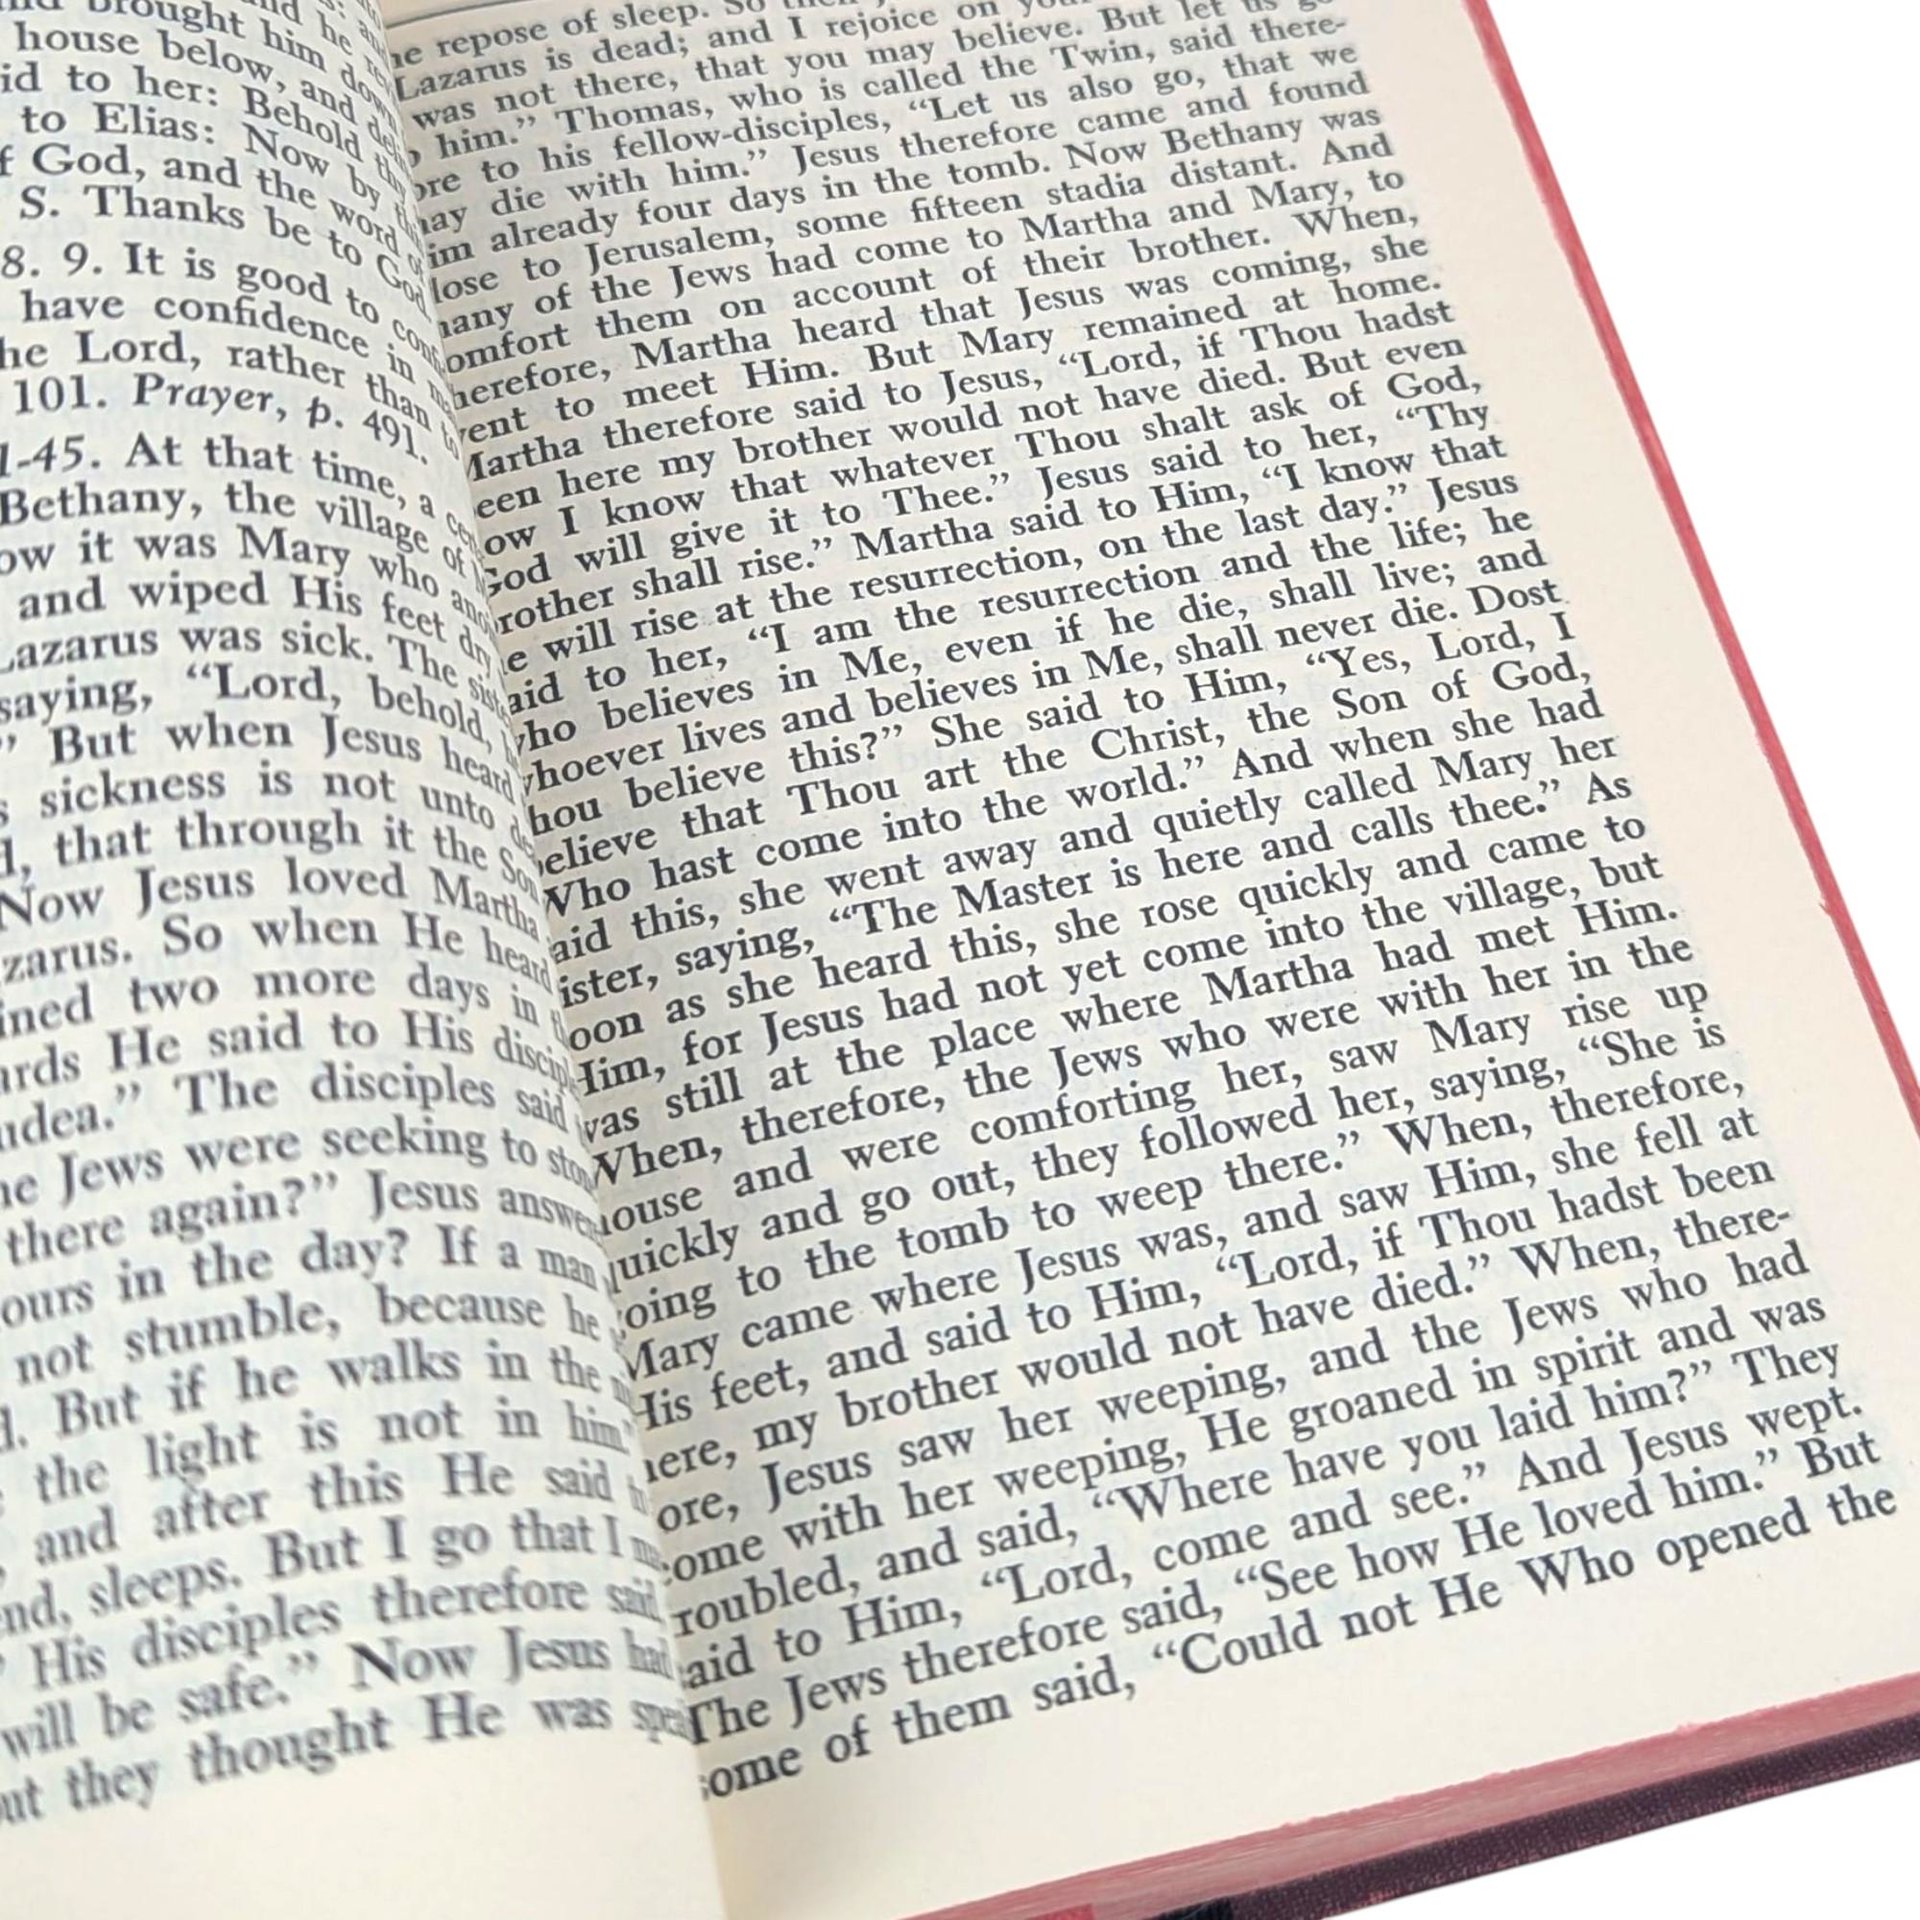 brought him down
house below, and
id to her: Behold
to Elias: Now by
f God, and the word of
S. Thanks be to God.
8. 9. It is good to
have confidence in
he Lord, rather than to
101. Prayer, p. 491.
1-45. At that time, a
Bethany, the village of
ow it was Mary who
and wiped His feet dry
Lazarus was sick. The
saying, “Lord, behold,
” But when Jesus heard
s sickness is not unto
d, that through it the Son
Now Jesus loved Martha
zarus. So when He heard
ined two more days in
ards He said to His
udea.” The disciples said
he Jews were seeking to
there again?” Jesus
ours in the day? If a man
not stumble, because he
d. But if he walks in the
the light is not in him.”
and after this He said
end, sleeps. But I go that I
His disciples therefore said,
will be safe.” Now Jesus had
ut they thought He was
he repose of sleep. So
Lazarus is dead; and I rejoice on
was not there, that you may believe. But let us go
o him.” Thomas, who is called the Twin, said there-
ore to his fellow-disciples, “Let us also go, that we
may die with him.” Jesus therefore came and found
im already four days in the tomb. Now Bethany was
lose to Jerusalem, some fifteen stadia distant. And
many of the Jews had come to Martha and Mary, to
omfort them on account of their brother. When,
herefore, Martha heard that Jesus was coming, she
went to meet Him. But Mary remained at home.
Martha therefore said to Jesus, “Lord, if Thou hadst
een here my brother would not have died. But even
ow I know that whatever Thou shalt ask of God,
God will give it to Thee.” Jesus said to her, “Thy
rother shall rise.” Martha said to Him, “I know that
e will rise at the resurrection, on the last day.” Jesus
aid to her, “I am the resurrection and the life; he
who believes in Me, even if he die, shall live; and
whoever lives and believes in Me, shall never die. Dost
hou believe this?” She said to Him, “Yes, Lord, I
believe that Thou art the Christ, the Son of God,
Who hast come into the world.” And when she had
aid this, she went away and quietly called Mary her
ister, saying, “The Master is here and calls thee.” As
oon as she heard this, she rose quickly and came to
Him, for Jesus had not yet come into the village, but
was still at the place where Martha had met Him.
When, therefore, the Jews who were with her in the
house and were comforting her, saw Mary rise up
quickly and go out, they followed her, saying, “She is
going to the tomb to weep there.” When, therefore,
Mary came where Jesus was, and saw Him, she fell at
His feet, and said to Him, “Lord, if Thou hadst been
here, my brother would not have died.” When, there-
ore, Jesus saw her weeping, and the Jews who had
come with her weeping, He groaned in spirit and was
troubled, and said, “Where have you laid him?” They
said to Him, “Lord, come and see.” And Jesus wept.
The Jews therefore said, “See how He loved him.” But
some of them said, “Could not He Who opened the